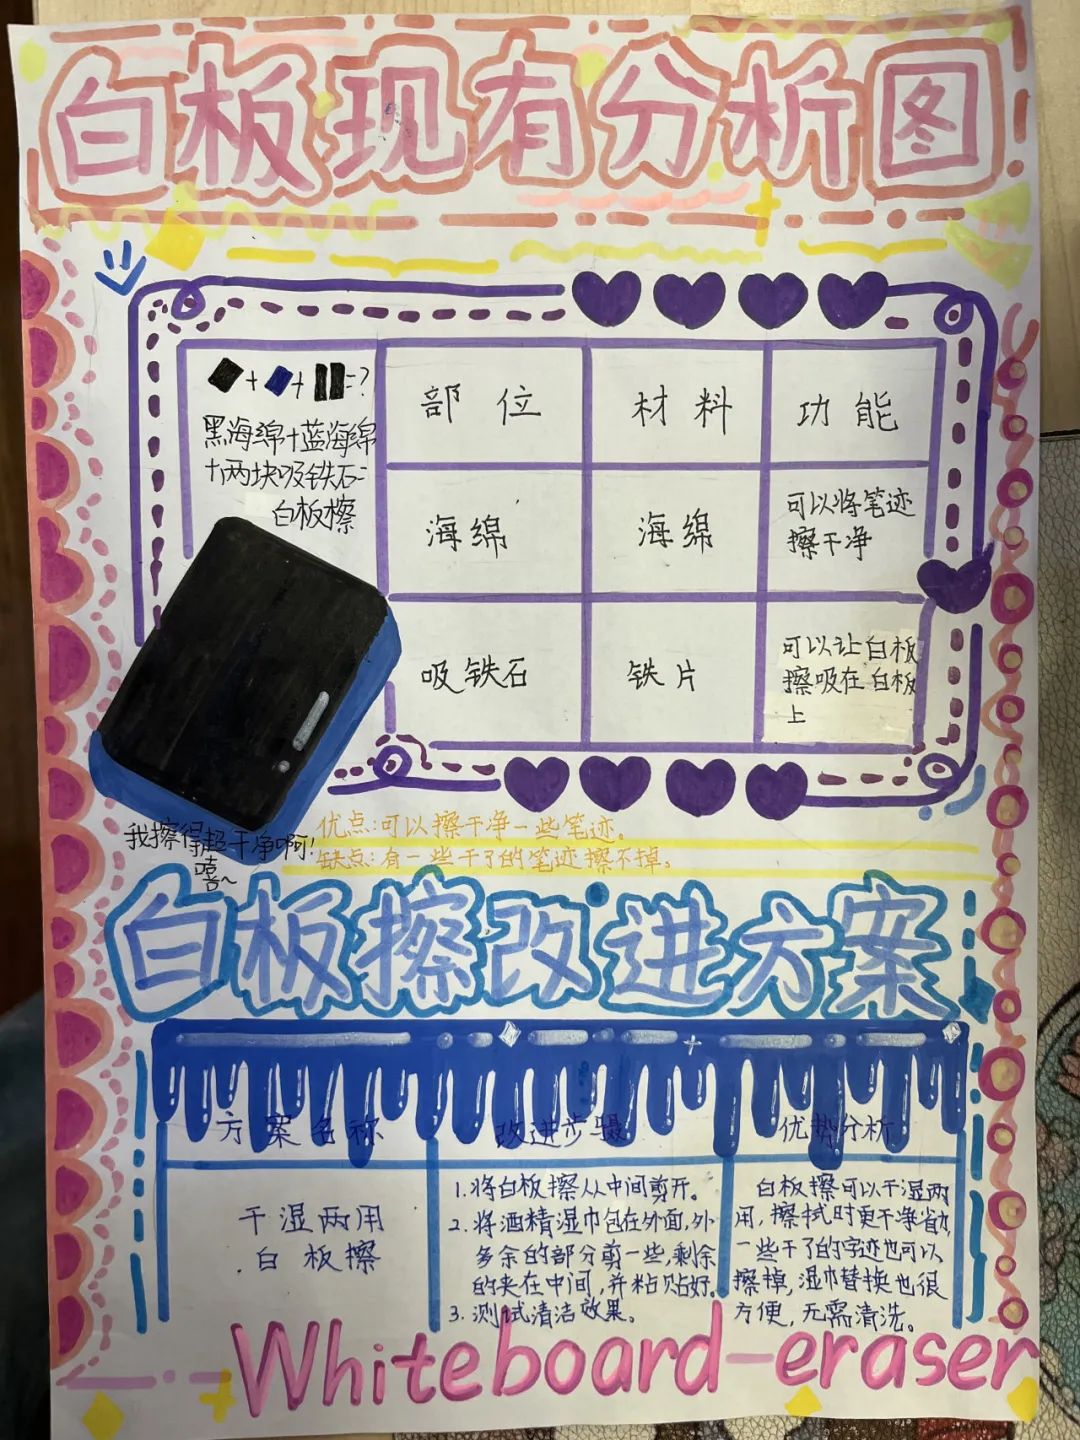 白板现有分析图
+ + =?
黑海绵+蓝海绵
+两块吸铁石=
白板擦
部位 材料 功能
海绵 海绵 可以将笔迹
擦干净
吸铁石 铁片 可以让白板
擦吸在白板
上
我擦得超干净啊!
嘻~
优点:可以擦干净一些笔迹。
缺点:有一些干了的笔迹擦不掉。
白板擦改进方案
方案名称 改进步骤 优势分析
干湿两用
白板擦
1.将白板擦从中间剪开。
2.将酒精湿巾包在外面,外
多余的部分剪一些,剩余
的夹在中间,并粘贴好。
3.测试清洁效果。
白板擦可以干湿两
用,擦拭时更干净省力,
一些干了的字迹也可以
擦掉,湿巾替换也很
方便,无需清洗。
Whiteboard-eraser